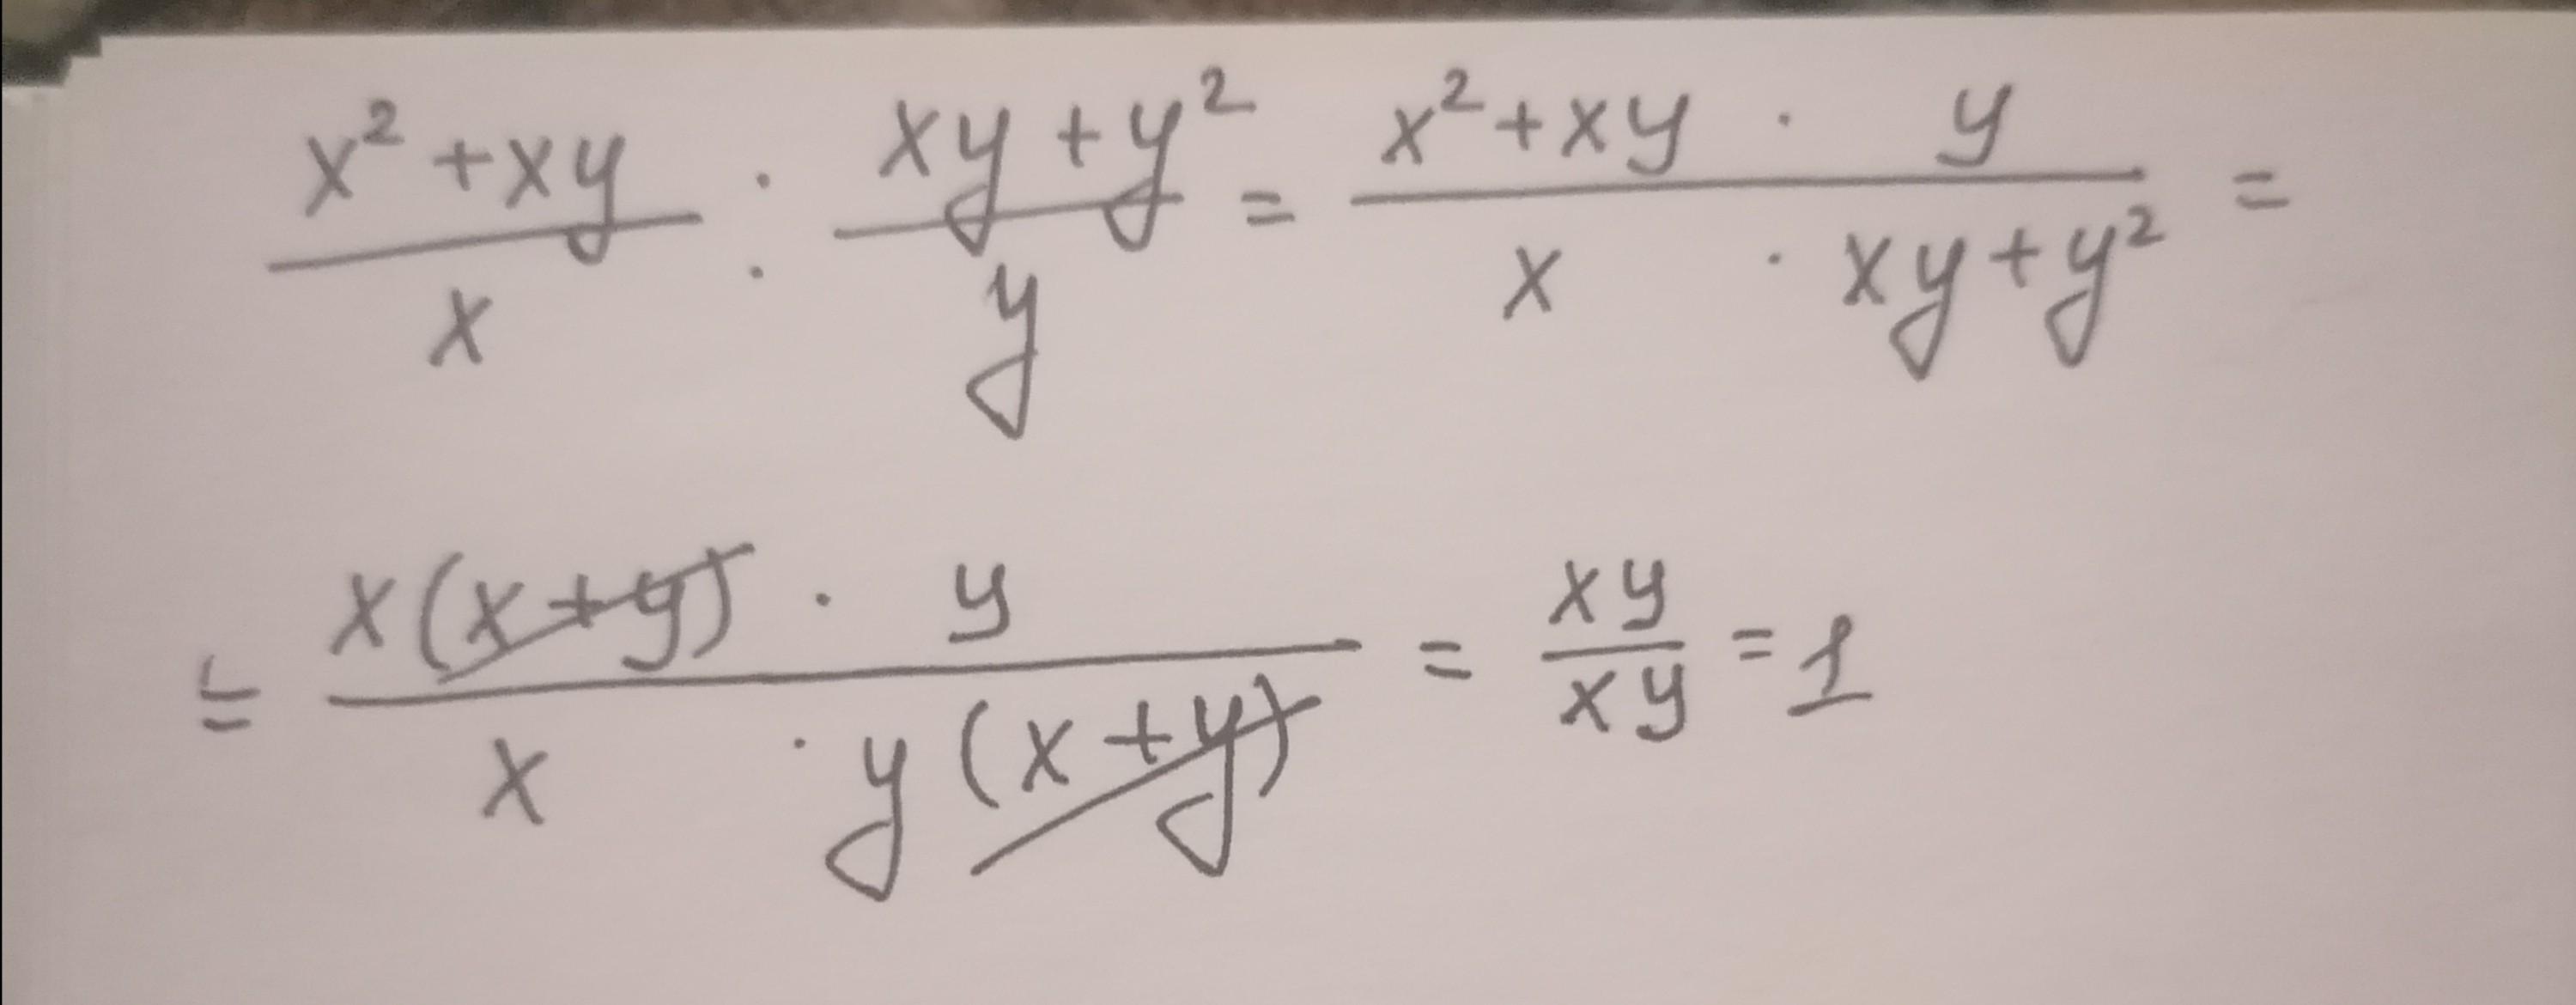 (x² + xy)/x : (xy + y²)/y = (x² + xy · y)/(x · xy + y²) =
= (x(x+y) · y)/(x · y(x+y)) = xy/xy = 1